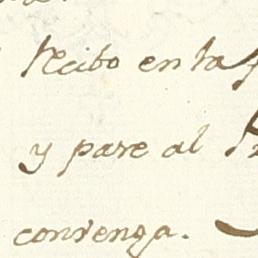 recibo en la
y pase al
convenga.